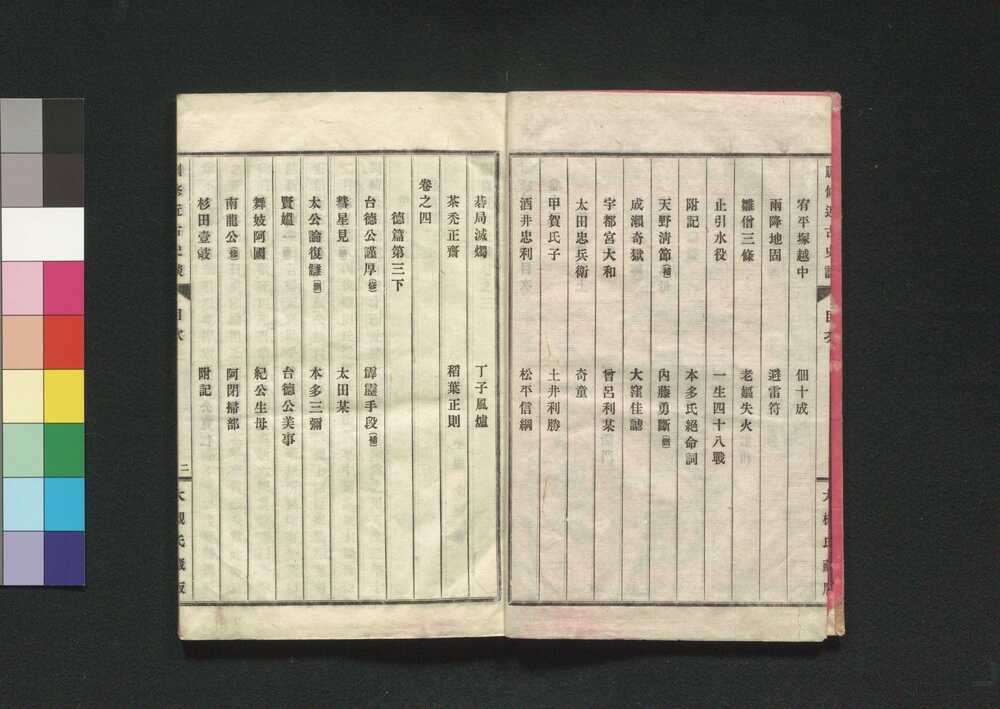 宥平塚越中　佃十成
雨降地固　避雷符
雛僧三條　老嫗失火
止引水役　一生四十八戰
附記　本多氏絕命詞
天野淸節(補)　內藤勇斷(刪)
成瀨奇獄　大窪佳謔
宇都宮大和　曾呂利某
太田忠兵衛　奇童
甲賀氏子　土井利勝
酒井忠利　松平信綱
碁局滅燭　丁子風爐
茶禿正齋　稻葉正則
卷之四
德篇第三下
台德公謹厚(修)　霹靂手段(補)
彗星見(修)　太田某
太公論復讎(刪)　本多三彌
賢媼　台德公美事
舞妓阿國　紀公生母
南龍公(修)　阿閉掃部
杉田壹岐　附記
目次　二　大槻氏藏版